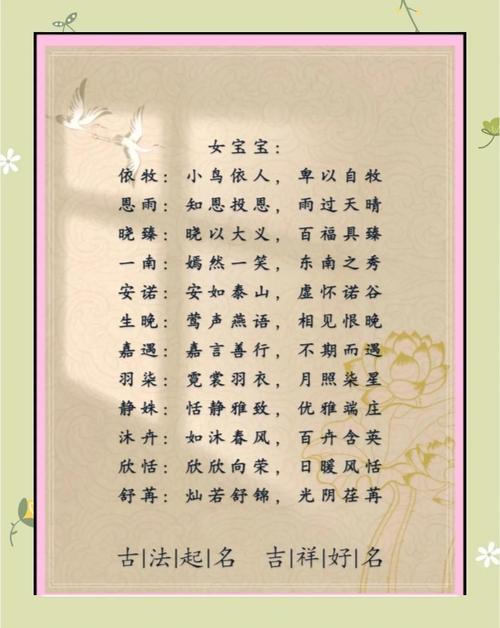 女宝宝：
依牧：小鸟依人，卑以自牧
恩雨：知恩投恩，雨过天晴
晓臻：晓以大义，百福具臻
一南：嫣然一笑，东南之秀
安诺：安如泰山，虚怀诺谷
生晚：莺声燕语，相见恨晚
嘉遇：嘉言善行，不期而遇
羽柒：霓裳羽衣，月照柒星
静姝：恬静雅致，优雅端庄
沐卉：如沐春风，百卉含英
欣恬：欣欣向荣，日暖风恬
舒苒：灿若舒锦，光阴荏苒
古|法|起|名 吉|祥|好|名